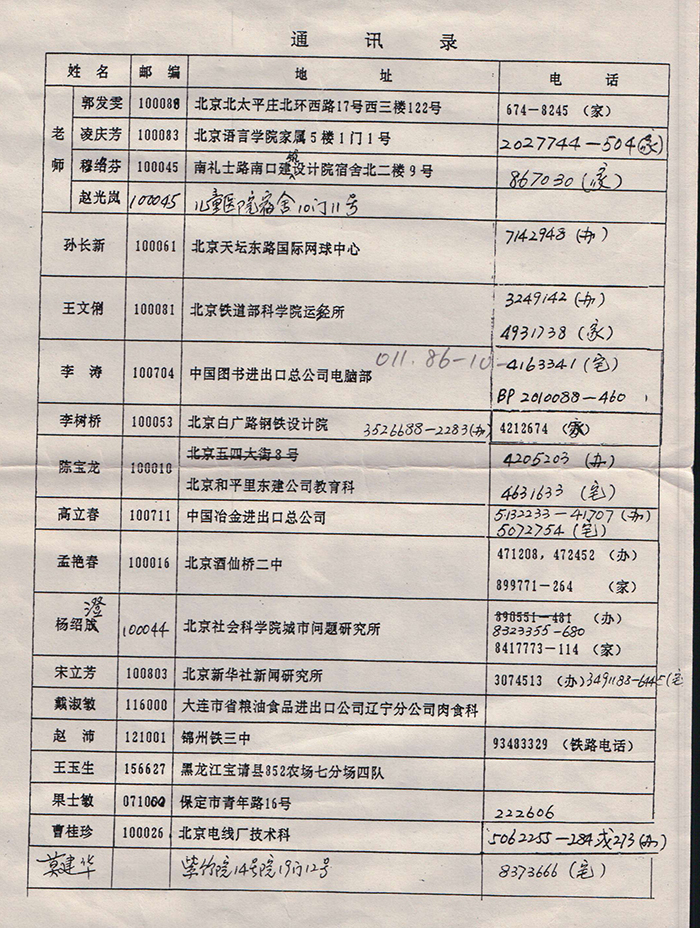 通 讯 录
姓 名 邮 编 地 址 电 话
老师
郭发雯 100088 北京北太平庄北环西路17号西三楼122号 674-8245 (家)
凌庆芳 100083 北京语言学院家属5楼1门1号 2027744-504(家)
穆绪芬 100045 南礼士路南口建筑设计院宿舍北二楼9号 867030 (家)
赵光岚 100045 儿童医院宿舍10门11号
孙长新 100061 北京天坛东路国际网球中心 7142948 (办)
王文俐 100081 北京铁道部科学院运经所 3249142 (办)
4931738 (家)
李 涛 100704 中国图书进出口总公司电脑部 011.86-10-4163341 (宅)
BP 2010088-460
李树桥 100053 北京白广路钢铁设计院 3526688-2283(办) 4212674 (家)
陈宝龙 100010 北京五四大街8号 4205203 (办)
北京和平里东建公司教育科 4631633 (宅)
高立春 100711 中国冶金进出口总公司 5132233-41707 (办)
5072754 (宅)
孟艳春 100016 北京酒仙桥二中 471208, 472452 (办)
899771-264 (家)
杨绍澄 100044 北京社会科学院城市问题研究所 890551-481 (办)
8323355-680
8417773-114 (家)
宋立芳 100803 北京新华社新闻研究所 3074513 (办)3491188-6445(宅
戴淑敏 116000 大连市省粮油食品进出口公司辽宁分公司肉食科
赵 沛 121001 锦州铁三中 93483329 (铁路电话)
王玉生 156627 黑龙江宝请县852农场七分场四队
果士敏 071000 保定市青年路16号 222606
曹桂珍 100026 北京电线厂技术科 5062255-284或273(办)
莫建华 紫竹院14号院19门12号 8373666 (宅)